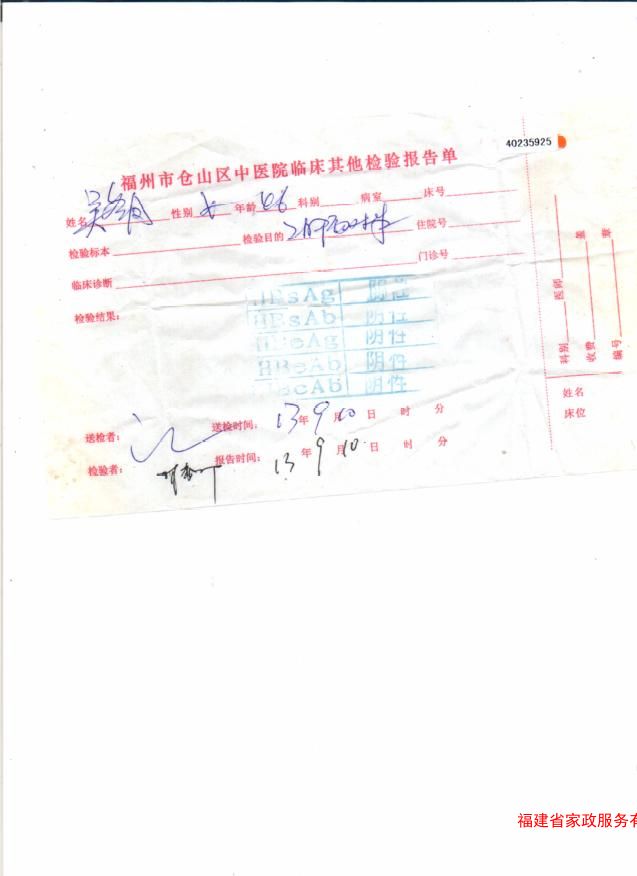 40235925
福州市仓山区中医院临床其他检验报告单
姓名 性别 女 年龄 46 科别 病室 床号
检验标本 检验目的 住院号
临床诊断 门诊号
检验结果:
HBsAg 阴性
HBsAb 阴性
HBeAg 阴性
HBeAb 阴性
HBcAb 阴性
送检者: 送检时间: 13年9月10日 时 分
检验者: 报告时间: 13年9月10日 时 分
科别 医师
收费 量
编号 要
姓名
床位
福建省家政服务有